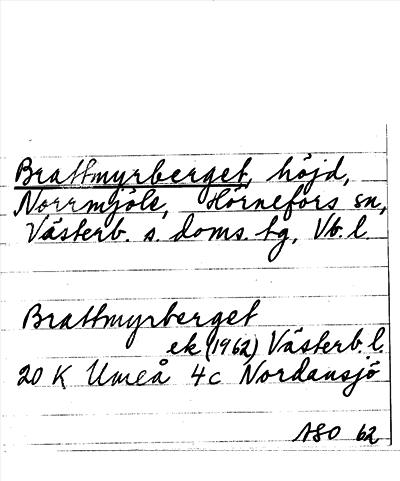 Brattmyrberget, höjd,
Norrmjöle, Hörnefors sn,
Västerb. s. doms. tg, Vb. l.
Brattmyrberget
ek (1962) Västerb. l.
20 K Umeå 4c Nordansjö
ASO 62